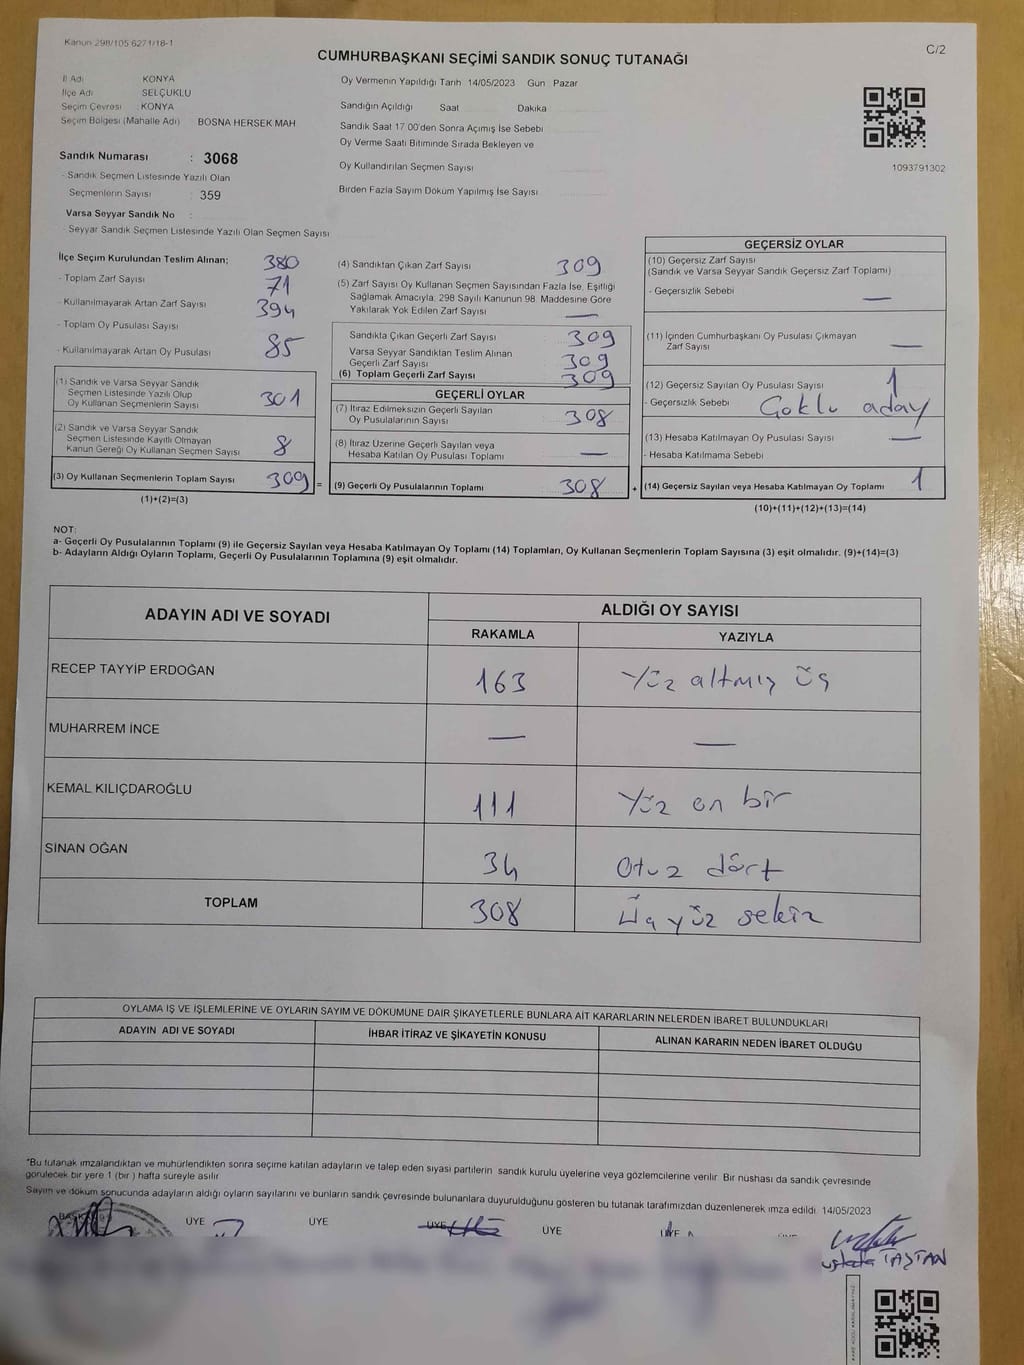 Kanun 298/105 6271/18-1
C/2
CUMHURBAŞKANI SEÇİMİ SANDIK SONUÇ TUTANAĞI
İl Adı KONYA
İlçe Adı SELÇUKLU
Seçim Çevresi : KONYA
Seçim Bölgesi (Mahalle Adı) BOSNA HERSEK MAH
Sandık Numarası : 3068
- Sandık Seçmen Listesinde Yazılı Olan
Seçmenlerin Sayısı : 359
Varsa Seyyar Sandık No :
- Seyyar Sandık Seçmen Listesinde Yazılı Olan Seçmen Sayısı
Oy Vermenin Yapıldığı Tarih 14/05/2023 Gün Pazar
Sandığın Açıldığı Saat Dakika
Sandık Saat 17 00'den Sonra Açımış İse Sebebi
Oy Verme Saati Bitiminde Sırada Bekleyen ve
Oy Kullandırılan Seçmen Sayısı
Birden Fazla Sayım Döküm Yapılmış İse Sayısı
1093791302
İlçe Seçim Kurulundan Teslim Alınan;
380
- Toplam Zarf Sayısı
71
- Kullanılmayarak Artan Zarf Sayısı
394
- Toplam Oy Pusulası Sayısı
- Kullanılmayarak Artan Oy Pusulası 85
(1) Sandık ve Varsa Seyyar Sandık
Seçmen Listesinde Yazılı Olup
Oy Kullanan Seçmenlerin Sayısı 301
(2) Sandık ve Varsa Seyyar Sandık
Seçmen Listesinde Kayıtlı Olmayan
Kanun Gereği Oy Kullanan Seçmen Sayısı 8
(3) Oy Kullanan Seçmenlerin Toplam Sayısı 309 =
(1)+(2)=(3)
(4) Sandıktan Çıkan Zarf Sayısı 309
(5) Zarf Sayısı Oy Kullanan Seçmen Sayısından Fazla İse, Eşitliği
Sağlamak Amacıyla, 298 Sayılı Kanunun 98 Maddesine Göre
Yakılarak Yok Edilen Zarf Sayısı —
Sandıkta Çıkan Geçerli Zarf Sayısı 309
Varsa Seyyar Sandıktan Teslim Alınan
Geçerli Zarf Sayısı 309
(6) Toplam Geçerli Zarf Sayısı 309
GEÇERLİ OYLAR
(7) İtiraz Edilmeksizin Geçerli Sayılan
Oy Pusulalarının Sayısı 308
(8) İtiraz Üzerine Geçerli Sayılan veya
Hesaba Katılan Oy Pusulası Toplamı —
(9) Geçerli Oy Pusulalarının Toplamı 308 +
GEÇERSİZ OYLAR
(10) Geçersiz Zarf Sayısı
(Sandık ve Varsa Seyyar Sandık Geçersiz Zarf Toplamı)
- Geçersizlik Sebebi —
(11) İçinden Cumhurbaşkanı Oy Pusulası Çıkmayan
Zarf Sayısı —
(12) Geçersiz Sayılan Oy Pusulası Sayısı 1
- Geçersizlik Sebebi Çoklu aday
(13) Hesaba Katılmayan Oy Pusulası Sayısı —
- Hesaba Katılmama Sebebi
(14) Geçersiz Sayılan veya Hesaba Katılmayan Oy Toplamı 1
(10)+(11)+(12)+(13)=(14)
NOT:
a- Geçerli Oy Pusulalarının Toplamı (9) ile Geçersiz Sayılan veya Hesaba Katılmayan Oy Toplamı (14) Toplamları, Oy Kullanan Seçmenlerin Toplam Sayısına (3) eşit olmalıdır. (9)+(14)=(3)
b- Adayların Aldığı Oyların Toplamı, Geçerli Oy Pusulalarının Toplamına (9) eşit olmalıdır.
ADAYIN ADI VE SOYADI ALDIĞI OY SAYISI
RAKAMLA YAZIYLA
RECEP TAYYİP ERDOĞAN 163 Yüz altmış üç
MUHARREM İNCE — —
KEMAL KILIÇDAROĞLU 111 Yüz on bir
SİNAN OĞAN 34 Otuz dört
TOPLAM 308 Üç yüz sekiz
OYLAMA İŞ VE İŞLEMLERİNE VE OYLARIN SAYIM VE DÖKÜMÜNE DAİR ŞİKAYETLERLE BUNLARA AİT KARARLARIN NELERDEN İBARET BULUNDUKLARI
ADAYIN ADI VE SOYADI İHBAR İTİRAZ VE ŞİKAYETİN KONUSU ALINAN KARARIN NEDEN İBARET OLDUĞU
*Bu tutanak imzalandıktan ve mühürlendikten sonra seçime katılan adayların ve talep eden siyasi partilerin sandık kurulu üyelerine veya gözlemcilerine verilir. Bir nüshası da sandık çevresinde
görülecek bir yere 1 (bir ) hafta süreyle asılır
Sayım ve döküm sonucunda adayların aldığı oyların sayılarını ve bunların sandık çevresinde bulunanlara duyurulduğunu gösteren bu tutanak tarafımızdan düzenlenerek imza edildi. 14/05/2023
ÜYE ÜYE ÜYE ÜYE
TAŞTAN